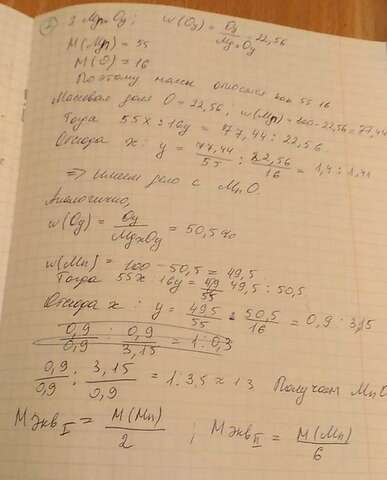 ② 2 MgxOy; w(Oy) = Oy / MgxOy = 22,56
M(Mg) = 55
M(O) = 16
Поэтому массы относятся как 55 16
Массовая доля O = 22,56, w(Mn) = 100-22,56 = 77,44
Тогда 55x : 16y = 77,44 : 22,56
Отсюда x : y = 77,44 / 55 : 22,56 / 16 = 1,4 : 1,41
=> имеем дело с MnO.
Аналогично,
w(Oy) = Oy / MgxOy = 50,5 %
w(Mn) = 100 - 50,5 = 49,5
Тогда 55x 16y = 49,5 : 50,5
Отсюда x : y = 49,5 / 55 : 50,5 / 16 = 0,9 : 3,15
0,9 / 0,9 : 0,9 / 3,15 = 1 : 0,3
0,9 / 0,9 : 3,15 / 0,9 = 1 : 3,5 ≈ 1 3 Получаем MnO
M экв I = M(Mn) / 2 ; M экв II = M(Mn) / 6